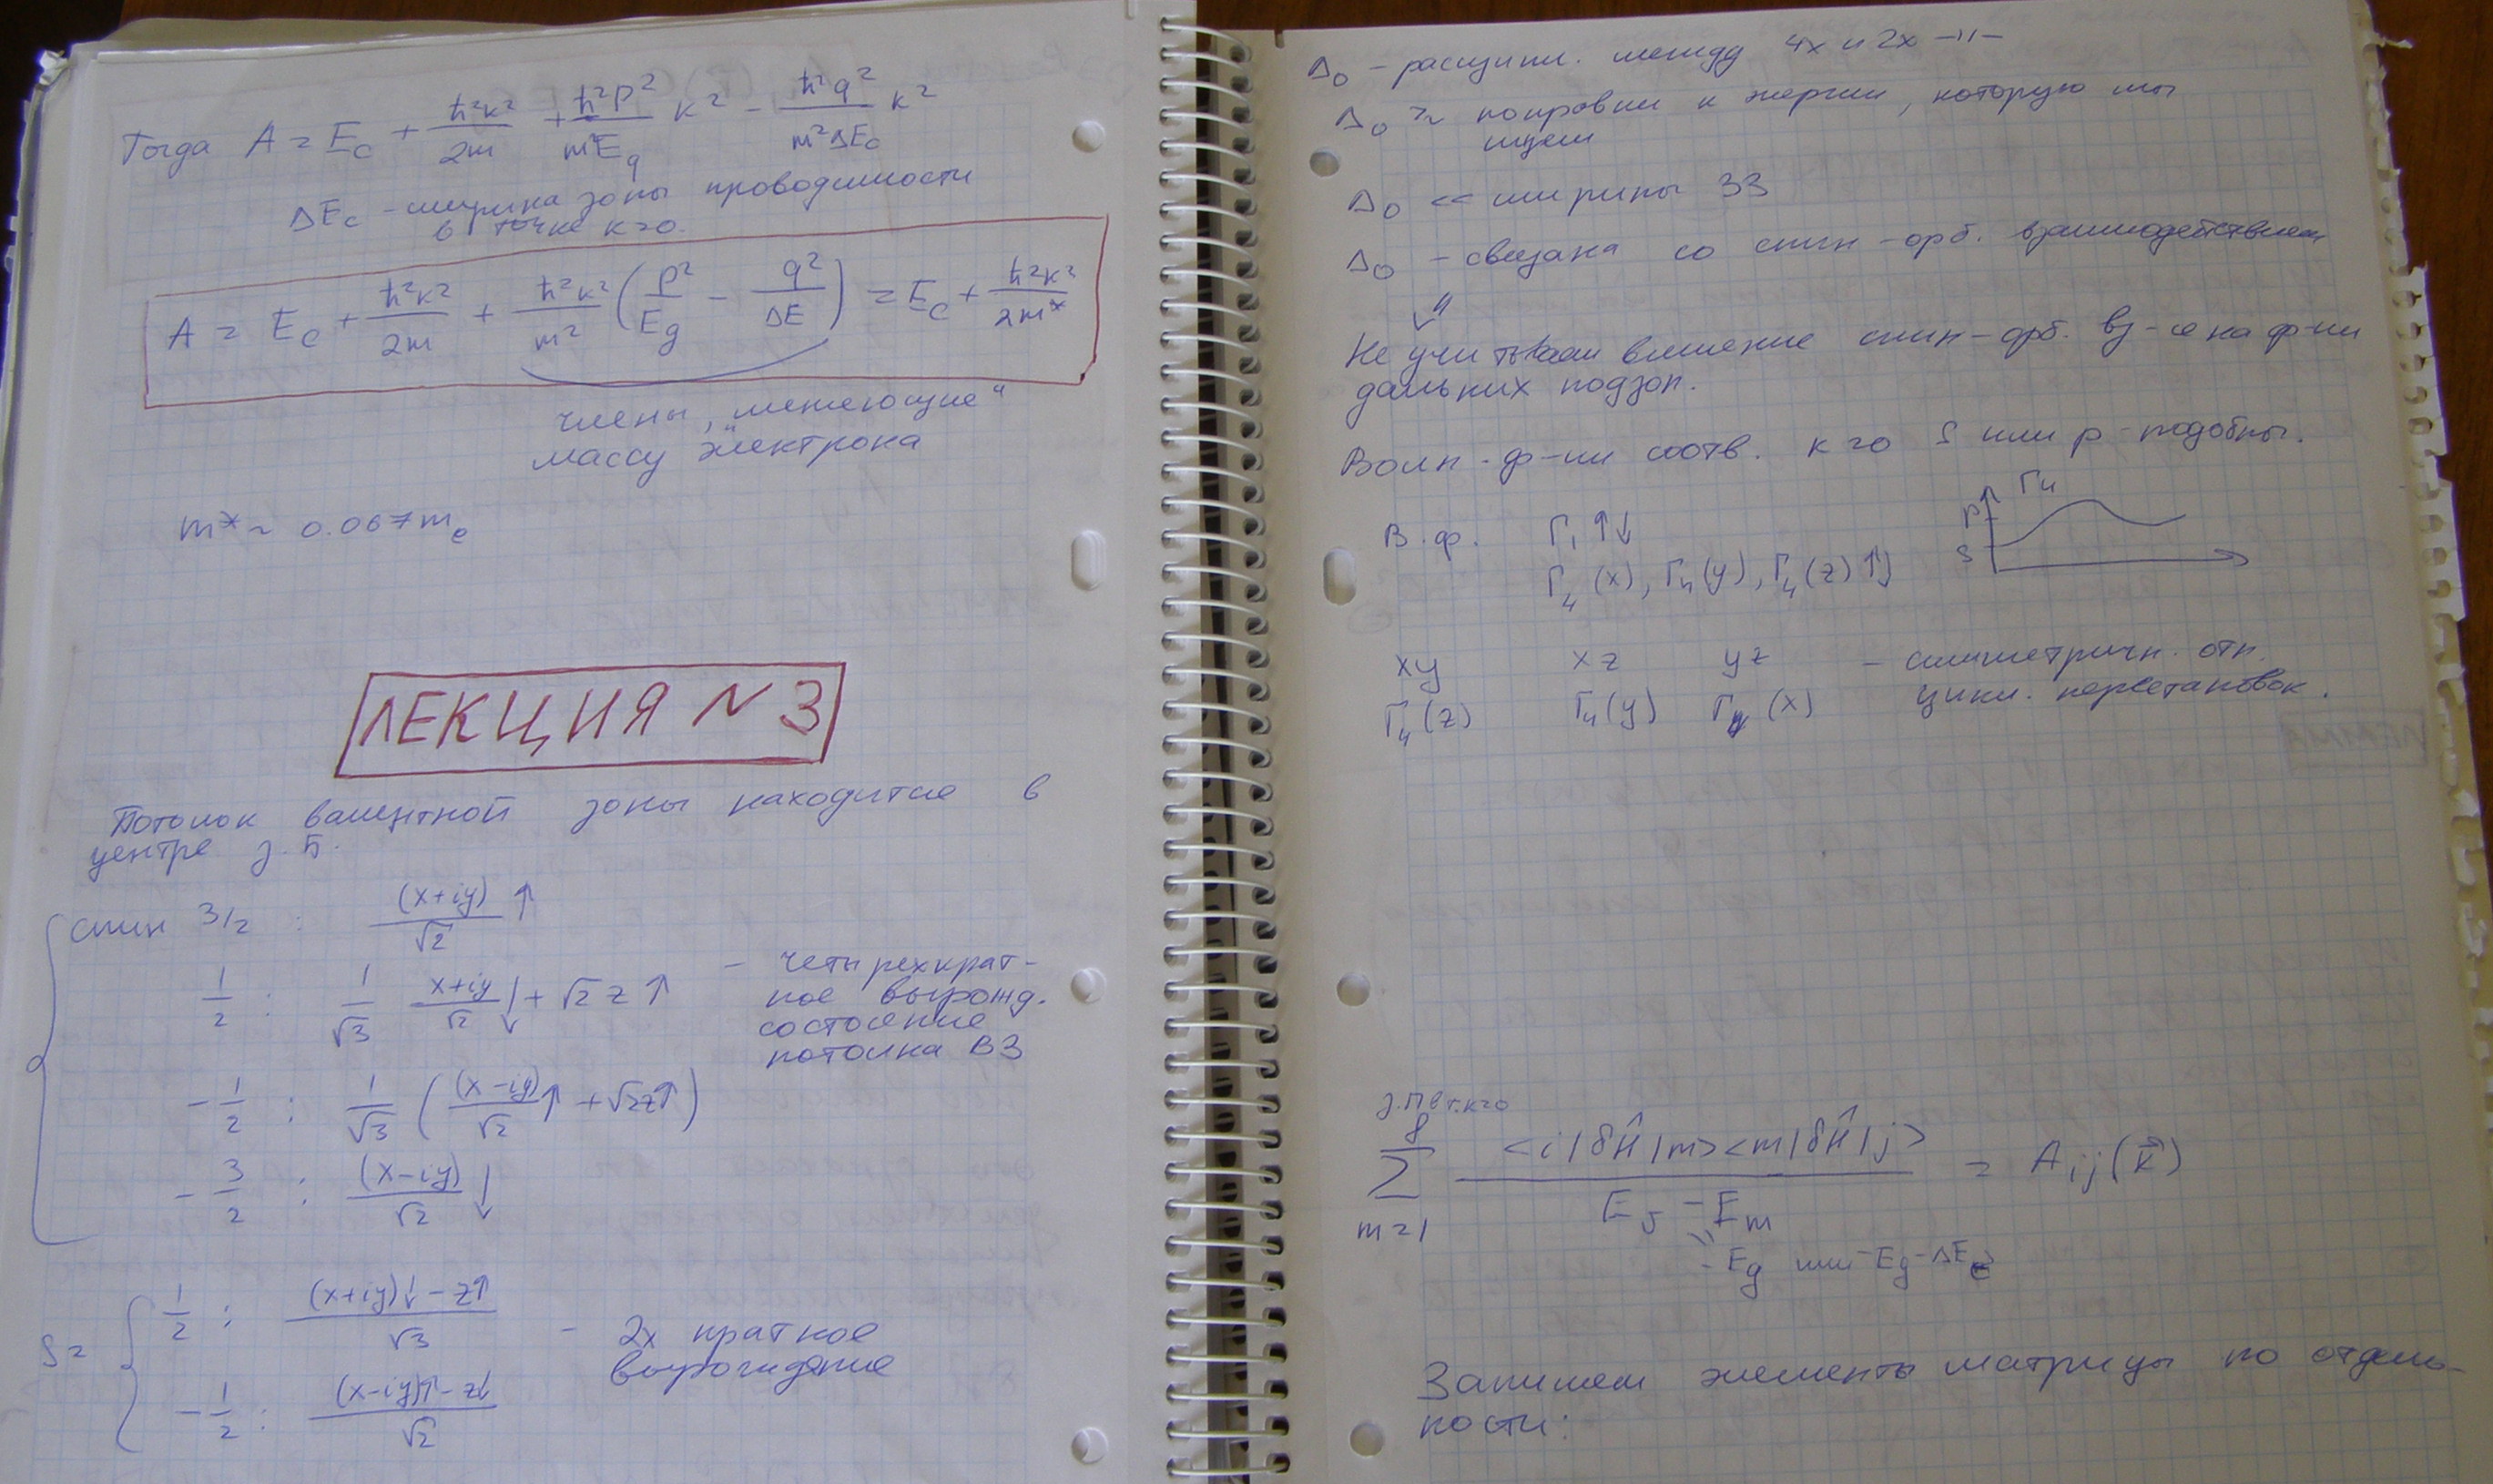 Тогда A = E_c + ħ²k²/2m + ħ²P²/m²E_g k² − ħ²q²/m²ΔE_c k²
ΔE_c – ширина зоны проводимости
в точке k=0.
A = E_c + ħ²k²/2m + ħ²k²/m² (P²/E_g − q²/ΔE) = E_c + ħ²k²/2m*
члены, "меняющие"
массу электрона
m* ~ 0.067 m_e
ЛЕКЦИЯ N 3
Потолок валентной зоны находится в
центре з. Б.
спин 3/2 : (x+iy)/√2 ↑
1/2 : 1/√3 (x+iy)/√2 ↓ + √2 z ↑
– четырехкрат-
ное вырожд.
состояние
потолка ВЗ
−1/2 : 1/√3 ( (x−iy)/√2 ↑ + √2z↑ )
−3/2 : (x−iy)/√2 ↓
S = { 1/2 : ((x+iy)↓ − z↑)/√3
−1/2 : ((x−iy)↑ − z↓)/√2
– 2х кратное
вырождение
Δ₀ – расщепл. между 4х и 2х –"–
Δ₀ ≳ поправки к энергии, которую мы
ищем
Δ₀ << ширины ЗЗ
Δ₀ – связана со спин-орб. взаимодействием
⇓
Не учитываем влияние спин-орб. вз-я на ф-ии
дальних подзон.
Волн. ф-ии соотв. k=0 S или p-подобны.
В.ф. Γ₁ ↑↓
Γ₄(x), Γ₄(y), Γ₄(z) ↑↓
p Γ₄
s
xy xz yz – симметричн. отн.
Γ₄(z) Γ₄(y) Γ₄(x) цикл. перестановок.
з.П в т.k=0
8
∑ <i|δĤ|m><m|δĤ|j> / (E_j − E_m) = A_ij(k⃗)
m=1
−E_g или −E_g−ΔE_c
Запишем элементы матрицы по отдель-
ности: